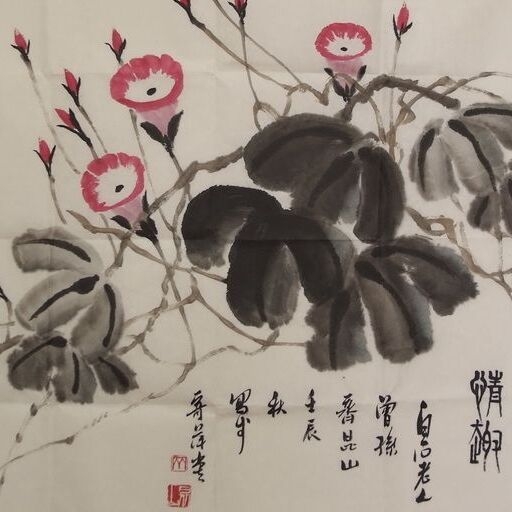 情趣
白石老人
曾孫
齊昆山
壬辰
秋
寫於
寄萍堂